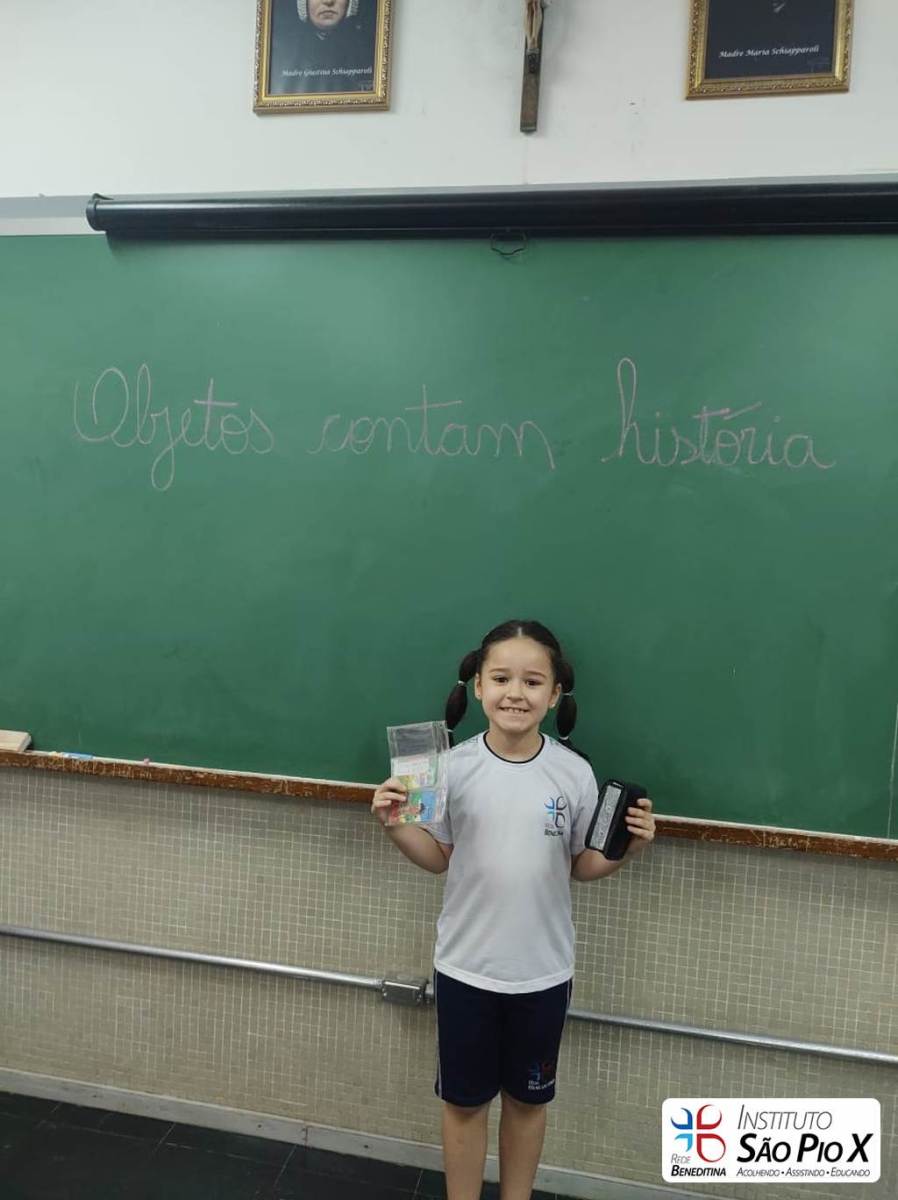 Madre Giustina Schiapparoli
Madre Maria Schiapparoli
Objetos contam história
REDE
BENEDITINA
INSTITUTO
SÃO PIO X
ACOLHENDO • ASSISTINDO • EDUCANDO